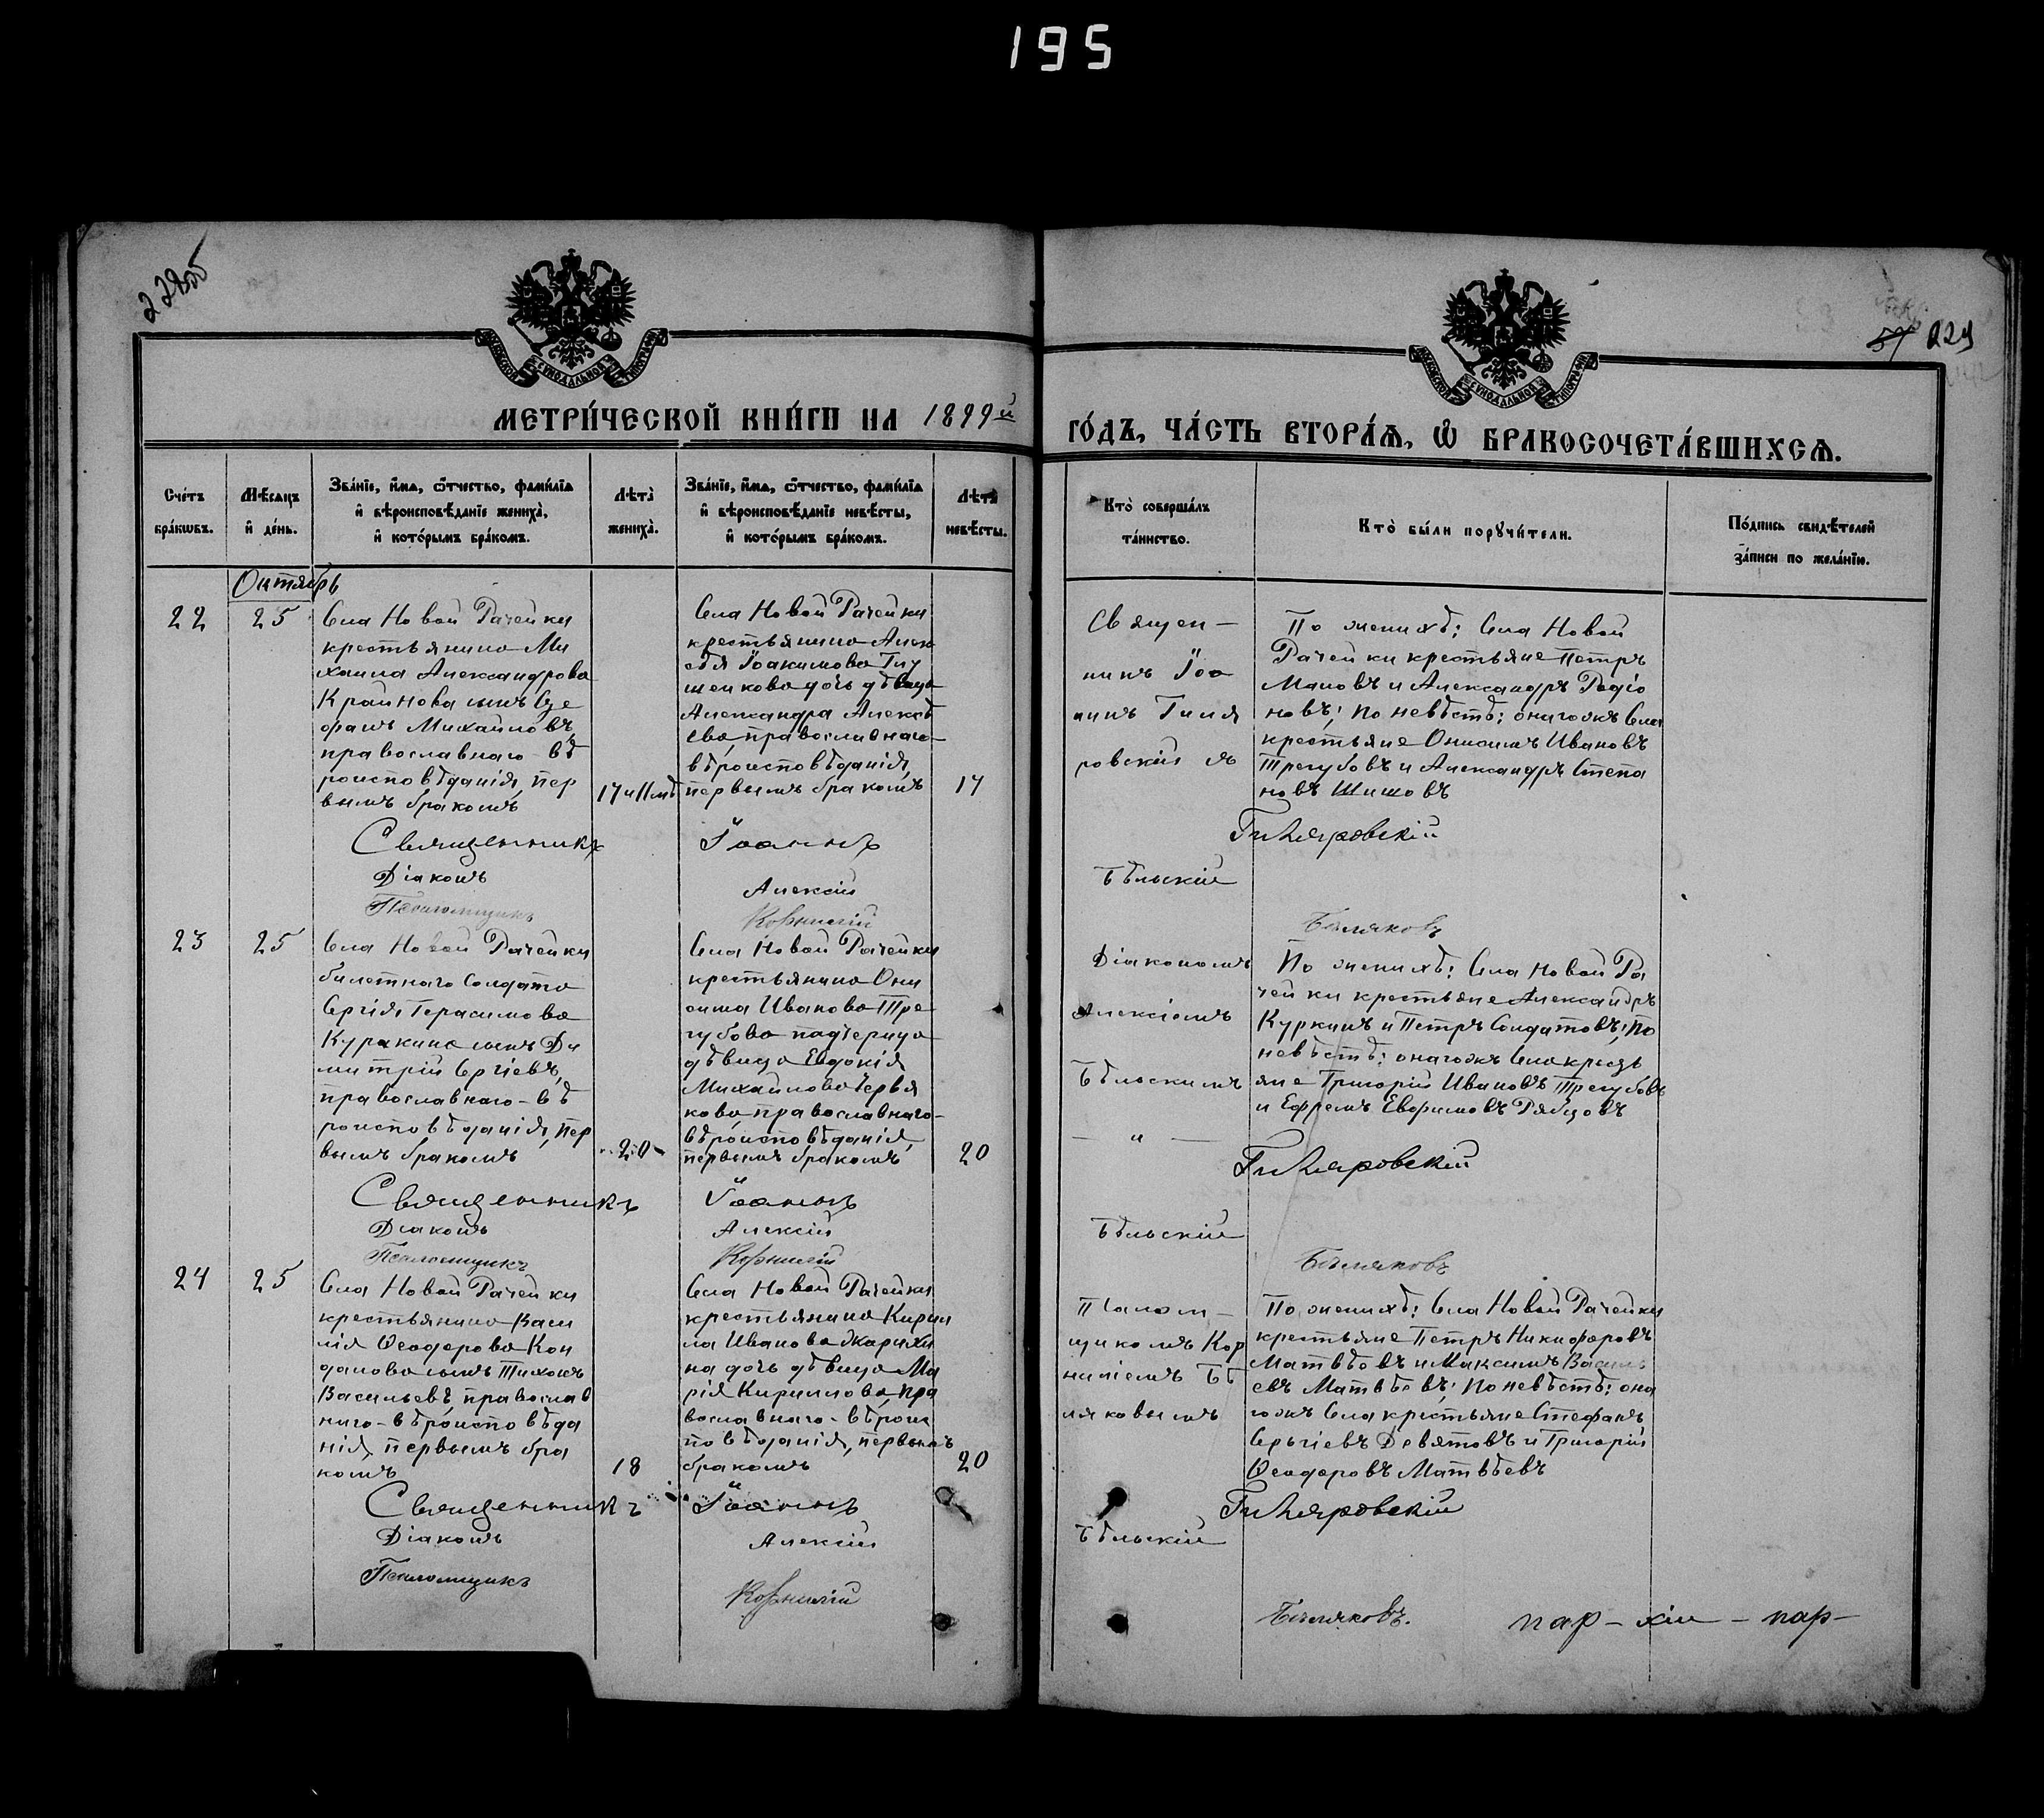 195
228об
57 229
МЕТРИ́ЧЕСКОЙ КНИ́ГИ НА 1899й
ГО́ДЪ, ЧА́СТЬ ВТОРА́Ѧ, Ѡ БРАКОСОЧЕТА́ВШИХСѦ.
Сче́тъ бра́кѡвъ.
Мѣ́сѧцъ и҆ де́нь.
Зва́нїе, и҆́мѧ, ѻ҆́тчество, фами́лїѧ
и҆ вѣроисповѣ́данїе жениха̀,
и҆ кото́рымъ бра́комъ.
Лѣта̀ жениха̀.
Зва́нїе, и҆́мѧ, ѻ҆́тчество, фами́лїѧ
и҆ вѣроисповѣ́данїе невѣ́сты,
и҆ кото́рымъ бра́комъ.
Лѣта̀ невѣ́сты.
Кто̀ соверша́лъ
та́инство.
Кто̀ бы́ли порꙋчи́тели.
По́дпись свидѣ́телей
за́писи по жела́нїю.
Октябрь
22
25
Села Новой Рачейки
крестьянина Ми
хаила Александрова
Крайнова сынъ Сте
фанъ Михайловъ,
православнаго-вѣ
роисповѣданія, пер
вымъ бракомъ
17 и 11 мѣ
Села Новой Рачейки
крестьянина Алек
сѣя Іоакимова
дочь дѣвица
Александра Алексѣ
ева православнаго-
вѣроисповѣданія,
первымъ бракомъ
17
Священ-
никъ Іоа
ннъ Гиля
ровскій
По женихѣ: Села Новой
Рачейки крестьяне Петръ
и Александръ Родіо
новъ; по невѣстѣ: онагожъ села
крестьяне Онисимъ Ивановъ
Трегубовъ и Александръ Степа
новъ Шишовъ
Священникъ Іоаннъ Гиляровскій
Діаконъ Алексій Бѣльскій
Псаломщикъ Корнилій Бѣляковъ
23
25
Села Новой Рачейки
билетнаго солдата
Сергія Герасимова
Куракина сынъ Ди
митрій Сергіевъ,
православнаго-вѣ
роисповѣданія, пер
вымъ бракомъ
20
Села Новой Рачейки
крестьянина Они
сима Иванова Тре
губова падчерица
дѣвица Евдокія
Михайлова Червя
кова православнаго-
вѣроисповѣданія,
первымъ бракомъ
20
Діакономъ
Алексіемъ
Бѣльскимъ
— " —
По женихѣ: Села Новой Ра
чейки крестьяне Александръ
Куркинъ и Петръ Солдатовъ; по
невѣстѣ: онагожъ села крестья
яне Григорій Ивановъ Трегубовъ
и Ефремъ Евфимовъ Рябцовъ
Священникъ Іоаннъ Гиляровскій
Діаконъ Алексій Бѣльскій
Псаломщикъ Корнилій Бѣляковъ
24
25
Села Новой Рачейки
крестьянина Васи
лія Ѳеодорова Кон
данова сынъ Тихонъ
Васильевъ, православ
наго-вѣроисповѣда
нія, первымъ бра
комъ
18
Села Новой Рачейки
крестьянина Кирил
ла Иванова
на дочь дѣвица Ма
рія Кириллова, пра
вославнаго-вѣроис
повѣданія, первымъ
бракомъ
20
Псалом-
щикомъ Кор
ниліемъ Бѣ
ляковымъ
По женихѣ: Села Новой Рачейки
крестьяне Петръ Никифоровъ
Матвѣевъ и Максимъ Василь
евъ Матвѣевъ; по невѣстѣ: она
гожъ села крестьяне Стефанъ
Сергіевъ Девятовъ и Григорій
Ѳеодоровъ Матвѣевъ
Священникъ Іоаннъ Гиляровскій
Діаконъ Алексій Бѣльскій
Псаломщикъ Корнилій Бѣляковъ.